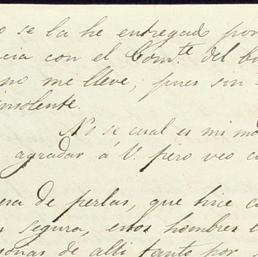 o se la he entregado por
cia con el Comte. del bu
no me lleve, pues son
insolente.
No se cual es mi mo
agradar á V. pero veo c
era de perlas, que hice c
s segura, estos hombres e
sonas de alli tanto por s